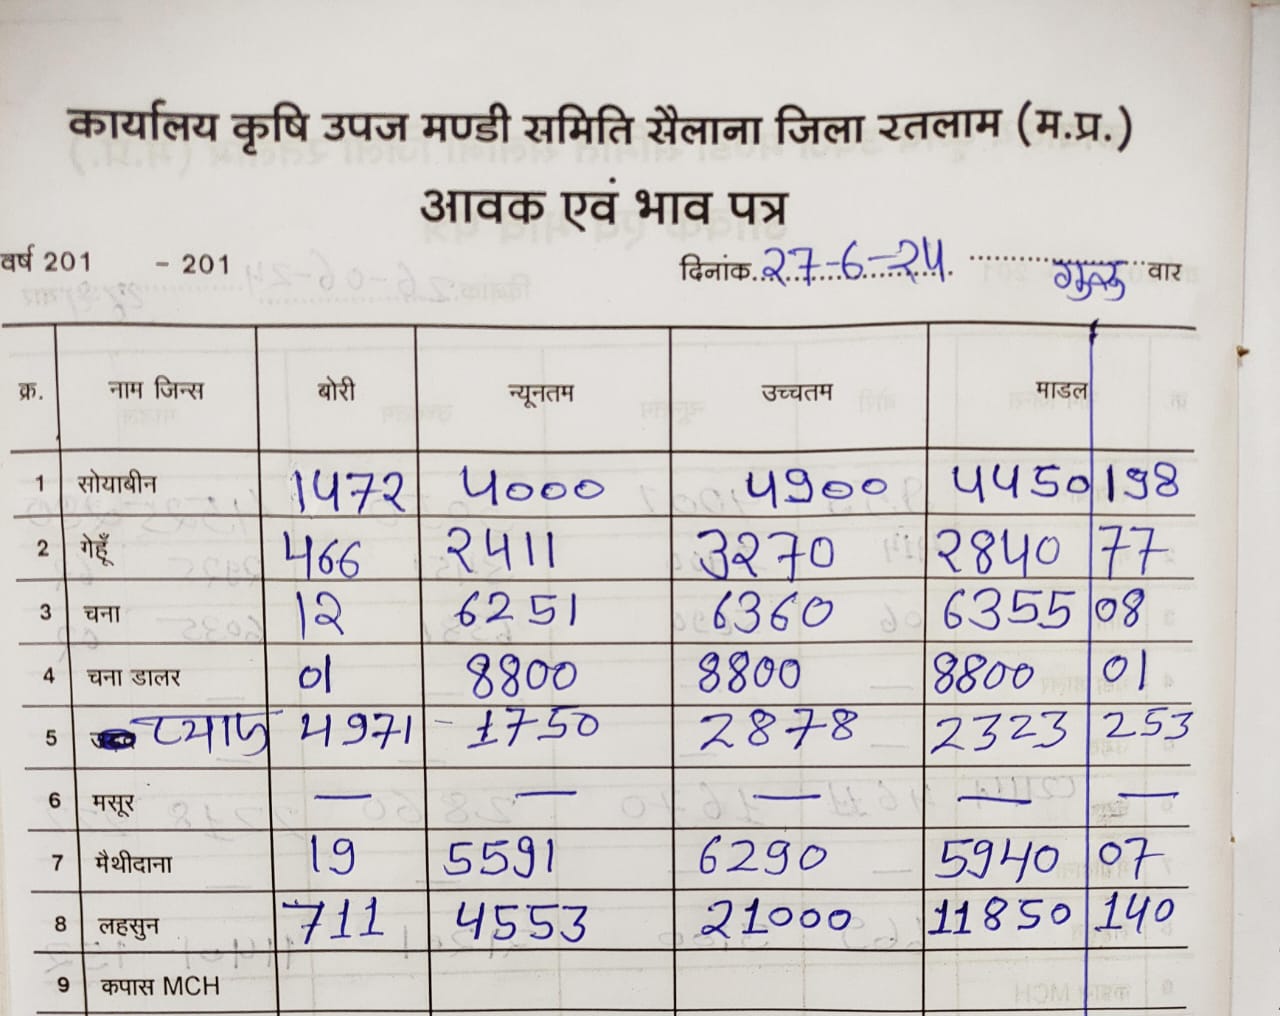 कार्यालय कृषि उपज मण्डी समिति सैलाना जिला रतलाम (म.प्र.)
आवक एवं भाव पत्र
वर्ष 201 - 201 दिनांक..27-6-24. ............गुरु..वार
क्र. नाम जिन्स बोरी न्यूनतम उच्चतम माडल
1 सोयाबीन 1472 4000 4900 4450 198
2 गेहूँ 466 2411 3270 2840 77
3 चना 12 6251 6360 6355 08
4 चना डालर 01 8800 8800 8800 01
5 प्याज 4971 - 1750 2878 2323 253
6 मसूर — — — — —
7 मैथीदाना 19 5591 6290 5940 07
8 लहसुन 711 4553 21000 11850 140
9 कपास MCH